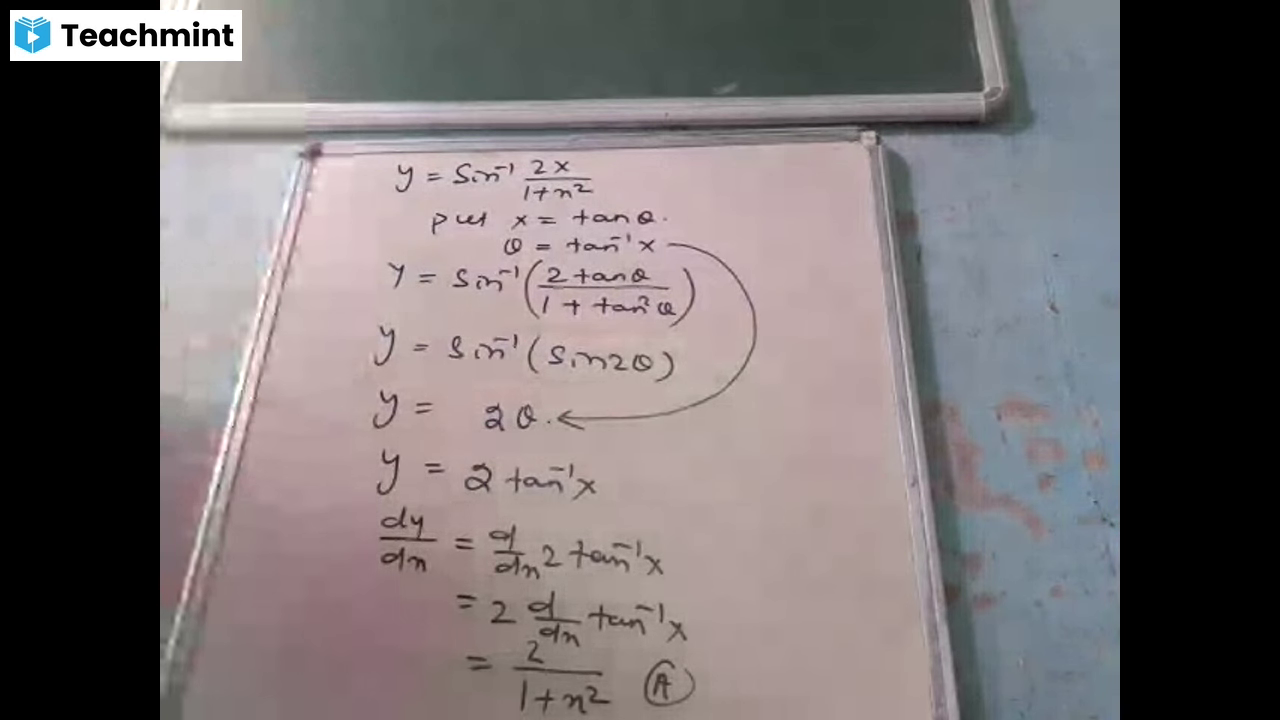 Teachmint
y = Sin⁻¹ 2x/1+x²
put x = tanθ.
θ = tan⁻¹x
y = Sin⁻¹(2tanθ/1+tan²θ)
y = Sin⁻¹(Sin2θ)
y = 2θ.
y = 2tan⁻¹x
dy/dx = d/dx 2tan⁻¹x
= 2 d/dx tan⁻¹x
= 2/1+x² A